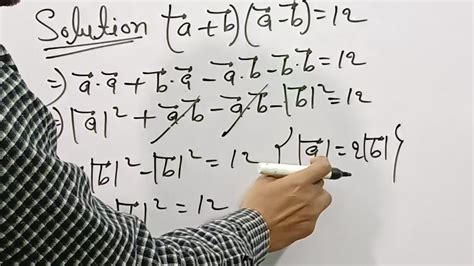 Solution (a⃗ + b⃗)(a⃗ - b⃗) = 12
⇒ a⃗ · a⃗ + b⃗ · a⃗ - a⃗ · b⃗ - b⃗ · b⃗ = 12
⇒ |a⃗|² + a⃗ · b⃗ - a⃗ · b⃗ - |b⃗|² = 12
|b⃗|² - |b⃗|² = 12 { |a⃗| = 2|b⃗| }
|² = 12